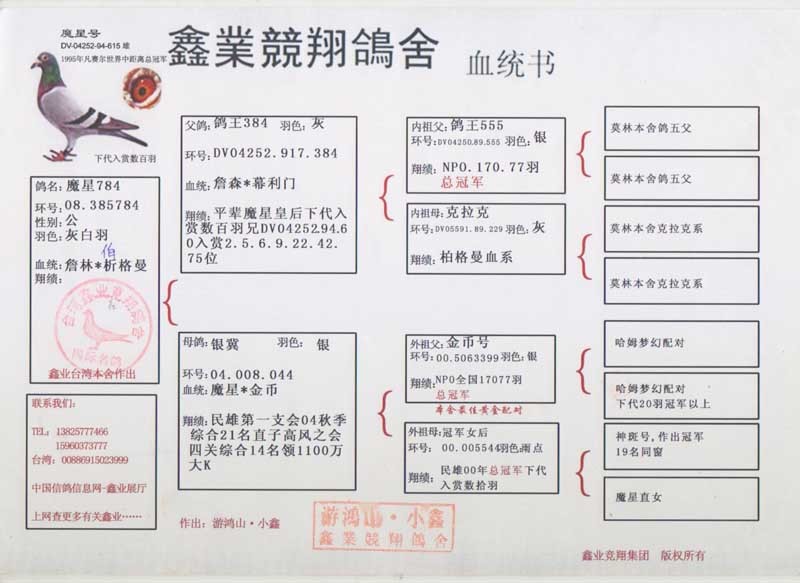 魔星号
DV-04252-94-615 雄
1995年凡赛尔世界中距离总冠军
下代入赏数百羽
鑫業競翔鴿舍 血统书
鸽名: 魔星784
环号: 08.385784
性别: 公
羽色: 灰白羽
伯
血统: 詹林*析格曼
翔绩:
台湾鑫业竞翔鸽舍
国际名鸽
鑫业台湾本舍作出
联系我们:
TEL: 13825777466
15960373777
台湾: 00886915023999
中国信鸽信息网-鑫业展厅
上网查更多有关鑫业……
父鸽: 鸽王384 羽色: 灰
环号: DV04252.917.384
血统: 詹森*幕利门
翔绩: 平辈魔星皇后下代入
赏数百羽兄DV04252.94.6
0入赏2.5.6.9.22.42.
75位
母鸽: 银冀 羽色: 银
环号: 04.008.044
血统: 魔星*金币
翔绩: 民雄第一支会04秋季
综合21名直子高风之会
四关综合14名领1100万
大K
作出: 游鸿山·小鑫
内祖父: 鸽王555
环号: DV04250.89.555 羽色: 银
翔绩: NPO.170.77羽
总冠军
内祖母: 克拉克
环号: DV05591.89.229 羽色: 灰
翔绩: 柏格曼血系
外祖父: 金币号
环号: 00.5063399 羽色: 银
翔绩: NPO全国17077羽
总冠军
本舍最佳黄金配对
外祖母: 冠军女后
环号: 00.005544 羽色: 雨点
翔绩: 民雄00年总冠军下代
入赏数拾羽
游鸿山·小鑫
鑫業競翔鴿舍
莫林本舍鸽五父
莫林本舍鸽五父
莫林本舍克拉克系
莫林本舍克拉克系
哈姆梦幻配对
哈姆梦幻配对
下代20羽冠军以上
神斑号,作出冠军
19名同窗
魔星直女
鑫业竞翔集团 版权所有